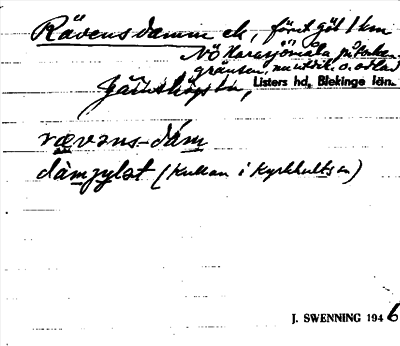 Rävensdamm ek, förut göl 1 km
NÖ Harasjömåla på socken-
gränsen, nu utdik. o. odlad
Jämshögs sn, Listers hd, Blekinge län.
rævəns-dám
dàmjylət (Kullan i Kyrkhults sn)
J. SWENNING 1946